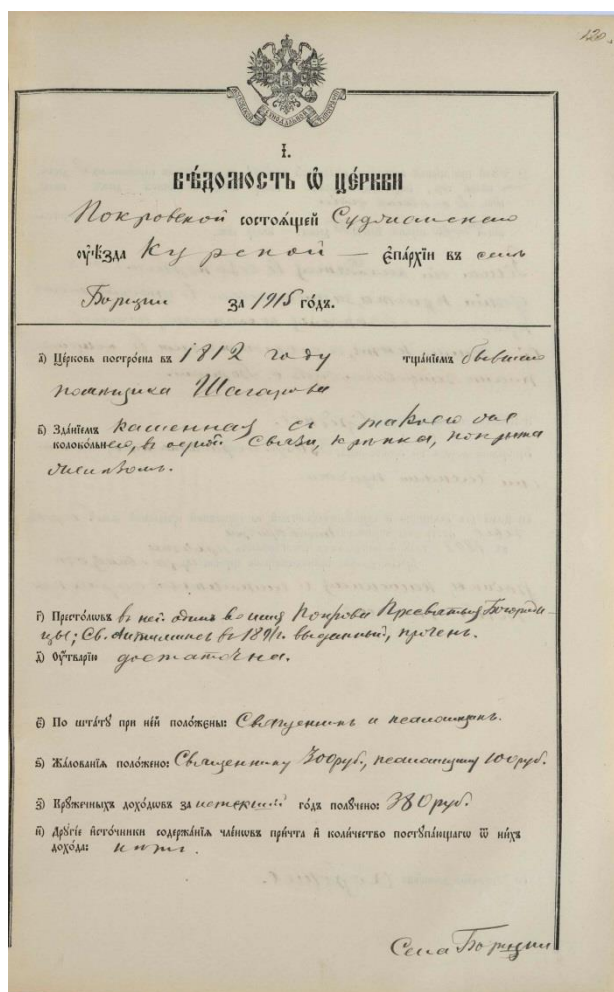 120.
І.
ВѢДОМОСТЬ Ѡ ЦЕ́РКВИ
Покровской состоѧ́щей Суджанскаго
ᲂу҆ѣ́зда Курской — є҆па́рхїи въ селѣ
Борщни за 1915 го́дъ.
а҃) Це́рковь постро́ена въ 1812 году тща́нїемъ бывшаго
помѣщика
в҃) Зда́нїемъ каменная съ такого же
колоко́льнею, въ одной связи, крѣпка, покрыта
желѣзомъ.
г҃) Престо́лѡвъ въ ней одинъ во имя Покрова Пресвятыя Богороди-
цы; Св. Антиминсъ въ 1891г. выданный, проченъ.
д҃) Оу҆́тварїю достаточна.
є҃) По шта́тꙋ при не́й поло́жены: Священникъ и псаломщикъ.
ѕ҃) Жа́лованїѧ поло́жено: Священнику 300руб., псаломщику 100руб.
з҃) Крꙋ́жечныхъ дохо́дѡвъ за истекшій го́дъ полꙋ́чено: 380руб.
и҃) Дрꙋгі́е и҆сто́чники содержа́нїѧ чле́нѡвъ при́чта и҆ коли́чество постꙋпа́ющагѡ ѿ ни́хъ
дохо́да: нѣтъ.
Села Борщни